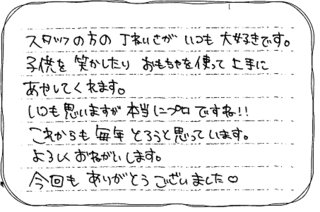 スタッフの方の丁ねいさがいつも大好きです。
子供を笑かしたりおもちゃを使って上手に
あやしてくれます。
いつも思いますが本当にプロですね!!
これからも毎年とろうと思っています。
よろしくおねがいします。
今回もありがとうございました♡